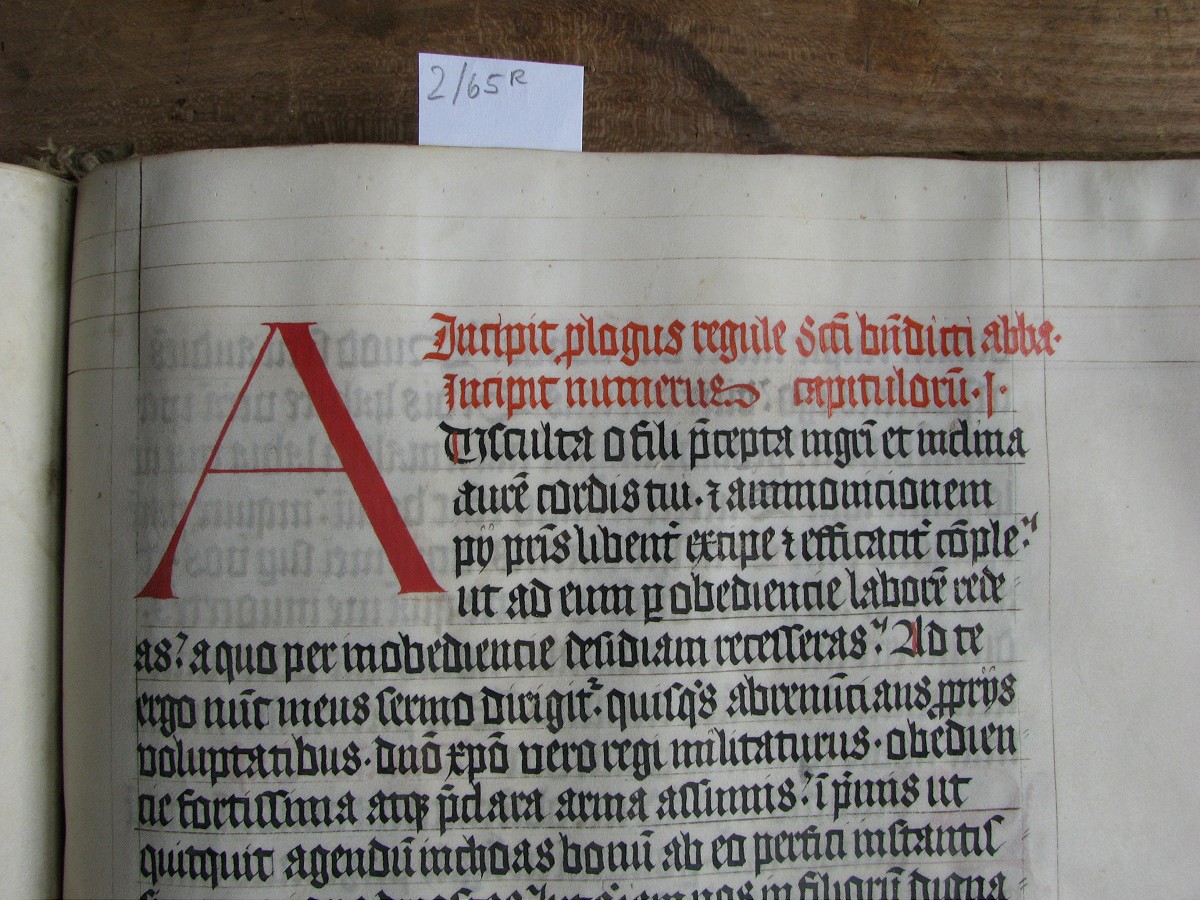 2/65R
Incipit plogus regule Scti bndicti abba·
Incipit numerus capitulorū·I·
A Usculta o fili p̄cepta mgrī et inclina
aurē cordis tui· ⁊ ammonicionem
pij pris libent excipe ⁊ efficacit cōple
ut ad eum ꝑ obediencie laborē rede
as? a quo per inobediencie desidiam recesseras? Ad te
ergo nūc meus sermo dirigit quisqs abrenūcians ꝓprijs
voluptatibus· dnō xpō vero regi militaturus· obedien
cie fortissima atqꝫ p̄clara arma assumis? ī pmis ut
quitquit agendū inchoas bonū ab eo perfici instantis
nos in filiorū digna